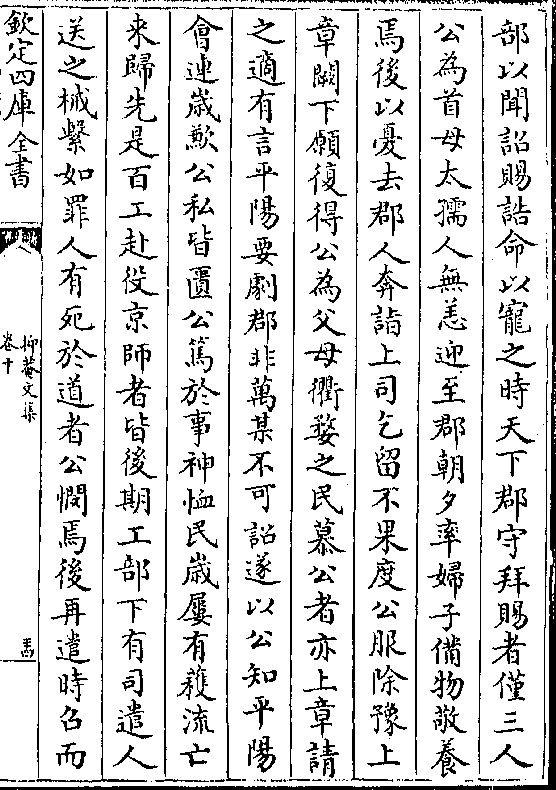 部以聞詔賜誥命以寵之時天下郡守拜賜者僅三人
公為首母太孺人無恙迎至郡朝夕率婦子備物敬養
焉後以憂去郡人奔詣上司乞留不果度公服除豫上
章闕下願復得公為父母衢婺之民慕公者亦上章請
之適有言平陽要劇郡非萬某不可詔遂以公知平陽
會連歲歉公私皆匱公篤於事神恤民歲屢有穫流亡
来歸先是百工赴役京師者皆後期工部下有司遣人
送之械繫如罪人有死於道者公憫焉後再遣時召而
欽定四庫全書
抑菴文集
卷十